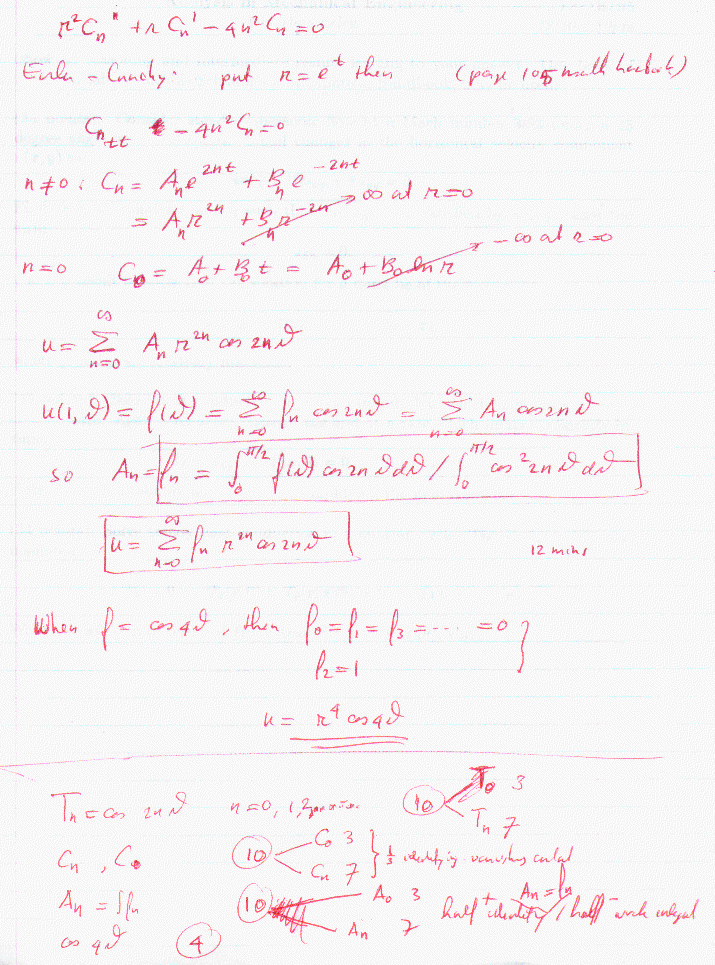 r²Cₙ'' + r Cₙ' − 4n²Cₙ = 0
Euler - Cauchy: put r = e^t then (page 105 math handbook)
Cₙ_tt − 4n²Cₙ = 0
n ≠ 0: Cₙ = Aₙe^{2nt} + Bₙe^{−2nt}
= Aₙr^{2n} + Bₙr^{−2n} → ∞ at r=0
n=0 C₀ = A₀ + B₀t = A₀ + B₀ ln r → −∞ at r=0
u = Σ_{n=0}^{∞} Aₙ r^{2n} cos 2nϑ
u(1,ϑ) = f(ϑ) = Σ_{n=0}^{∞} fₙ cos 2nϑ = Σ_{n=0}^{∞} Aₙ cos 2nϑ
so Aₙ = fₙ = ∫₀^{π/2} f(ϑ) cos 2nϑ dϑ / ∫₀^{π/2} cos² 2nϑ dϑ
u = Σ_{n=0}^{∞} fₙ r^{2n} cos 2nϑ
12 mins
When f = cos 4ϑ, then f₀ = f₁ = f₃ = ... = 0 }
f₂ = 1
u = r⁴ cos 4ϑ
Tₙ = cos 2nϑ n=0, 1, 2, 10 T₀ 3
Tₙ 7
Cₙ, C₀ 10 C₀ 3
Cₙ 7 } 1/3 identifying
Aₙ = ∫fₙ 10 A₀ 3
Aₙ 7 half identify Aₙ = fₙ / half work integral
cos 4ϑ 4